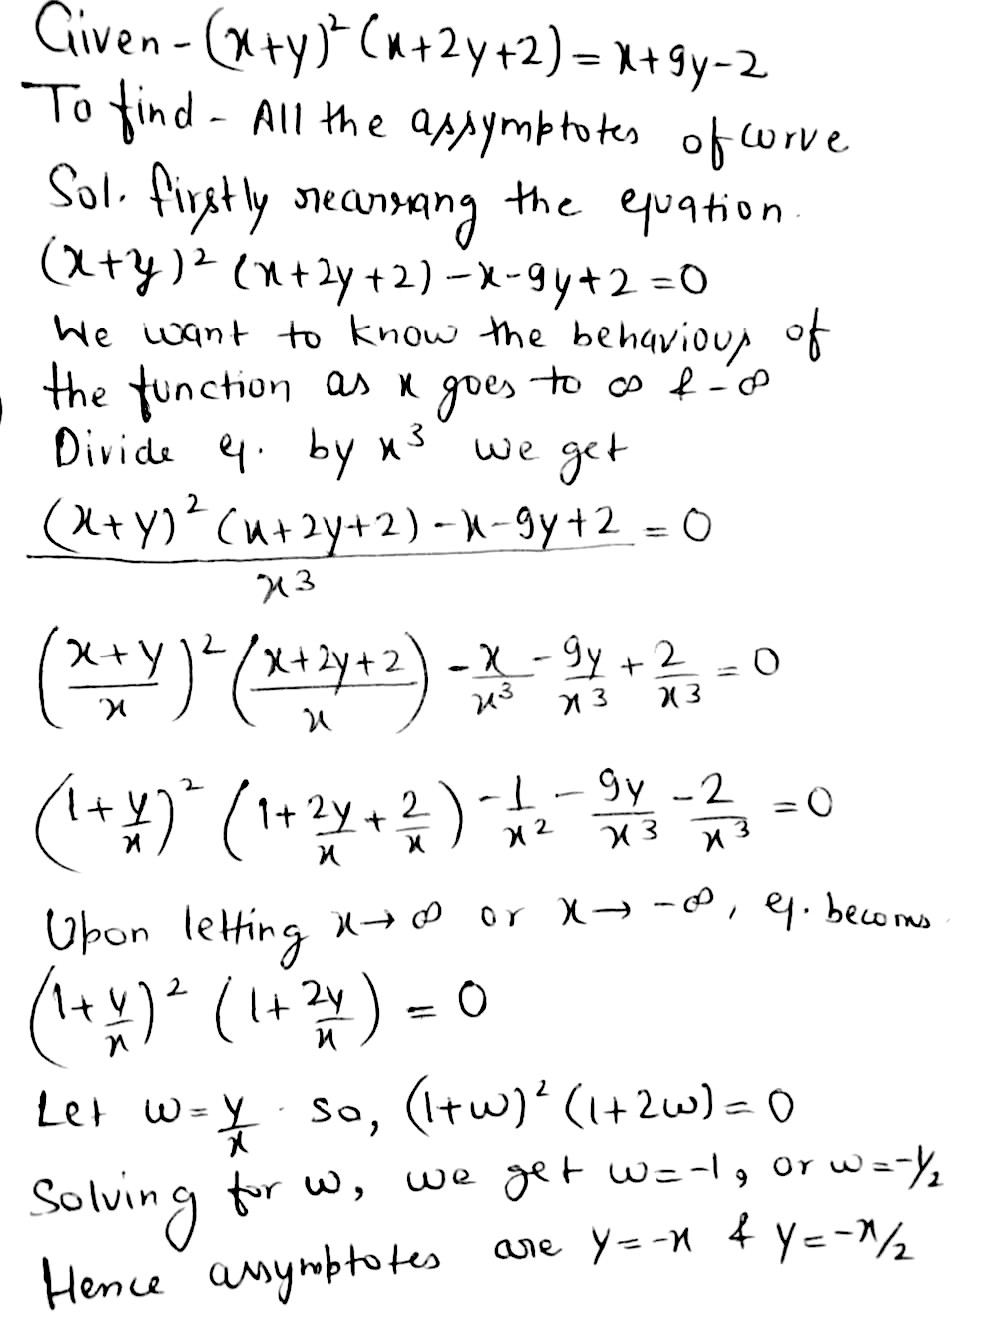 Given - (x+y)² (x+2y+2) = x+9y-2
To find - All the assymptotes of curve
Sol. firstly rearrang the equation.
(x+y)² (x+2y+2) -x-9y+2 =0
We want to know the behaviour of
the function as x goes to ∞ & -∞
Divide eq. by x³ we get
(x+y)² (x+2y+2) -x-9y+2 / x³ = 0
((x+y)/x)² ((x+2y+2)/x) - x/x³ - 9y/x³ + 2/x³ = 0
(1+y/x)² (1+2y/x+2/x) - 1/x² - 9y/x³ - 2/x³ = 0
Upon letting x→∞ or x→-∞, eq. becoms.
(1+y/x)² (1+2y/x) = 0
Let w=y/x. so, (1+w)² (1+2w)=0
Solving for w, we get w=-1, or w=-1/2
Hence assymptotes are y=-x & y=-x/2